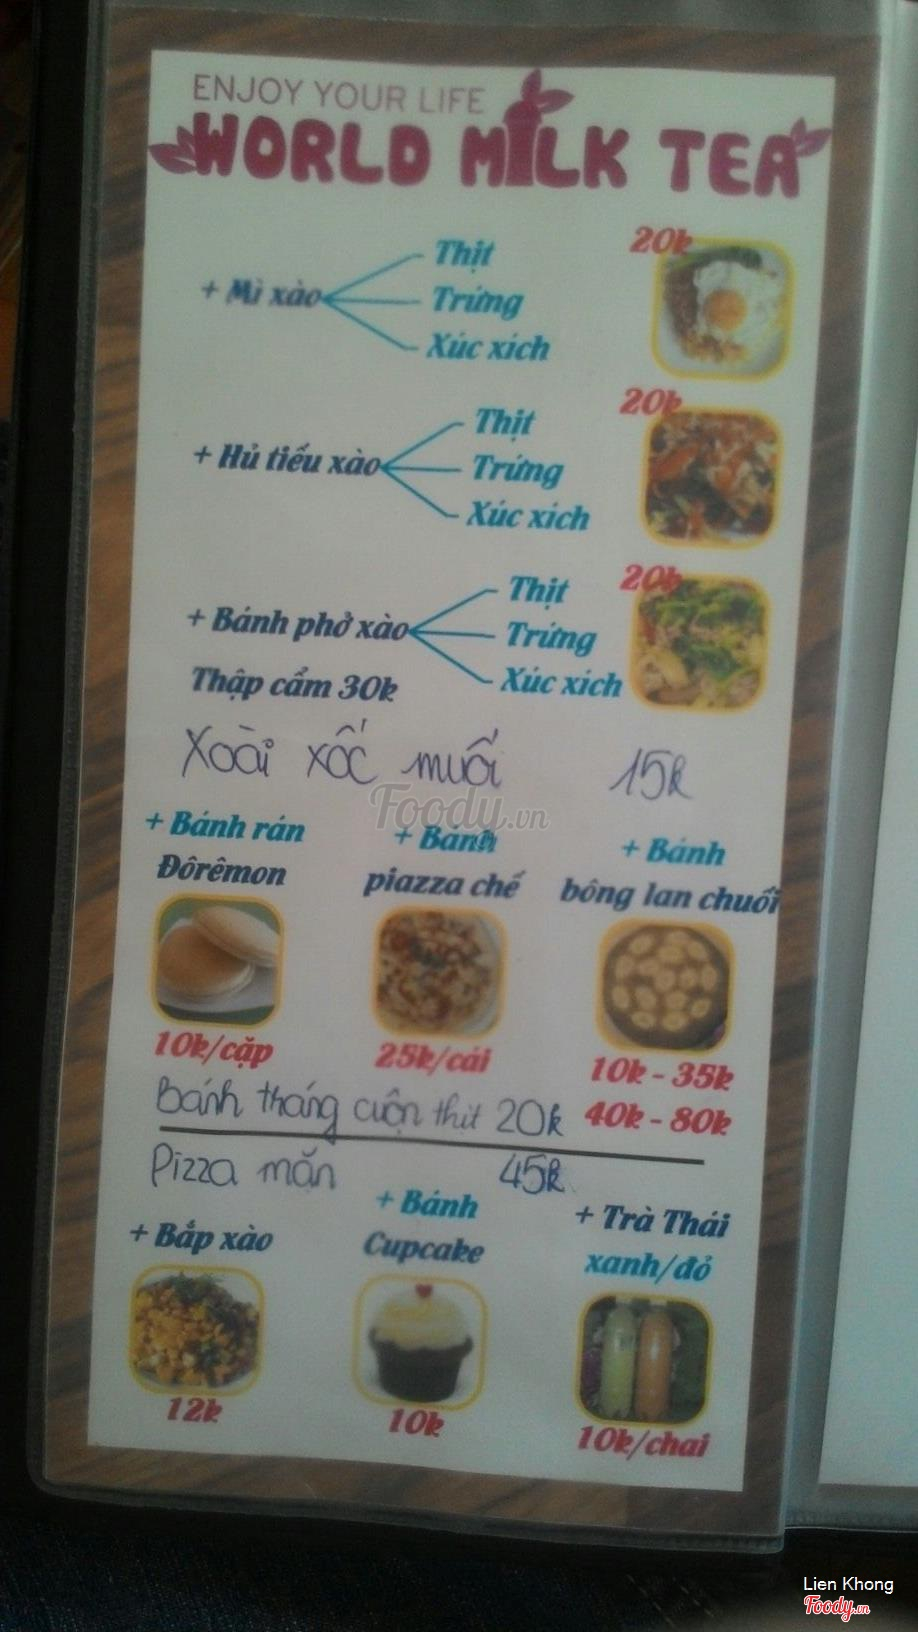 ENJOY YOUR LIFE
WORLD MILK TEA
+ Mì xào
Thịt
Trứng
Xúc xích
20k
+ Hủ tiếu xào
Thịt
Trứng
Xúc xích
20k
+ Bánh phở xào
Thịt
Trứng
Xúc xích
20k
Thập cẩm 30k
Xoài xốc muối 15k
Foody.vn
+ Bánh rán
Đôrêmon
10k/cặp
+ Bánh
piazza chế
25k/cái
+ Bánh
bông lan chuối
10k - 35k
40k - 80k
Bánh tháng cuộn thịt 20k
Pizza mặn 45k
+ Bắp xào
12k
+ Bánh
Cupcake
10k
+ Trà Thái
xanh/đỏ
10k/chai
Lien Khong
Foody.vn